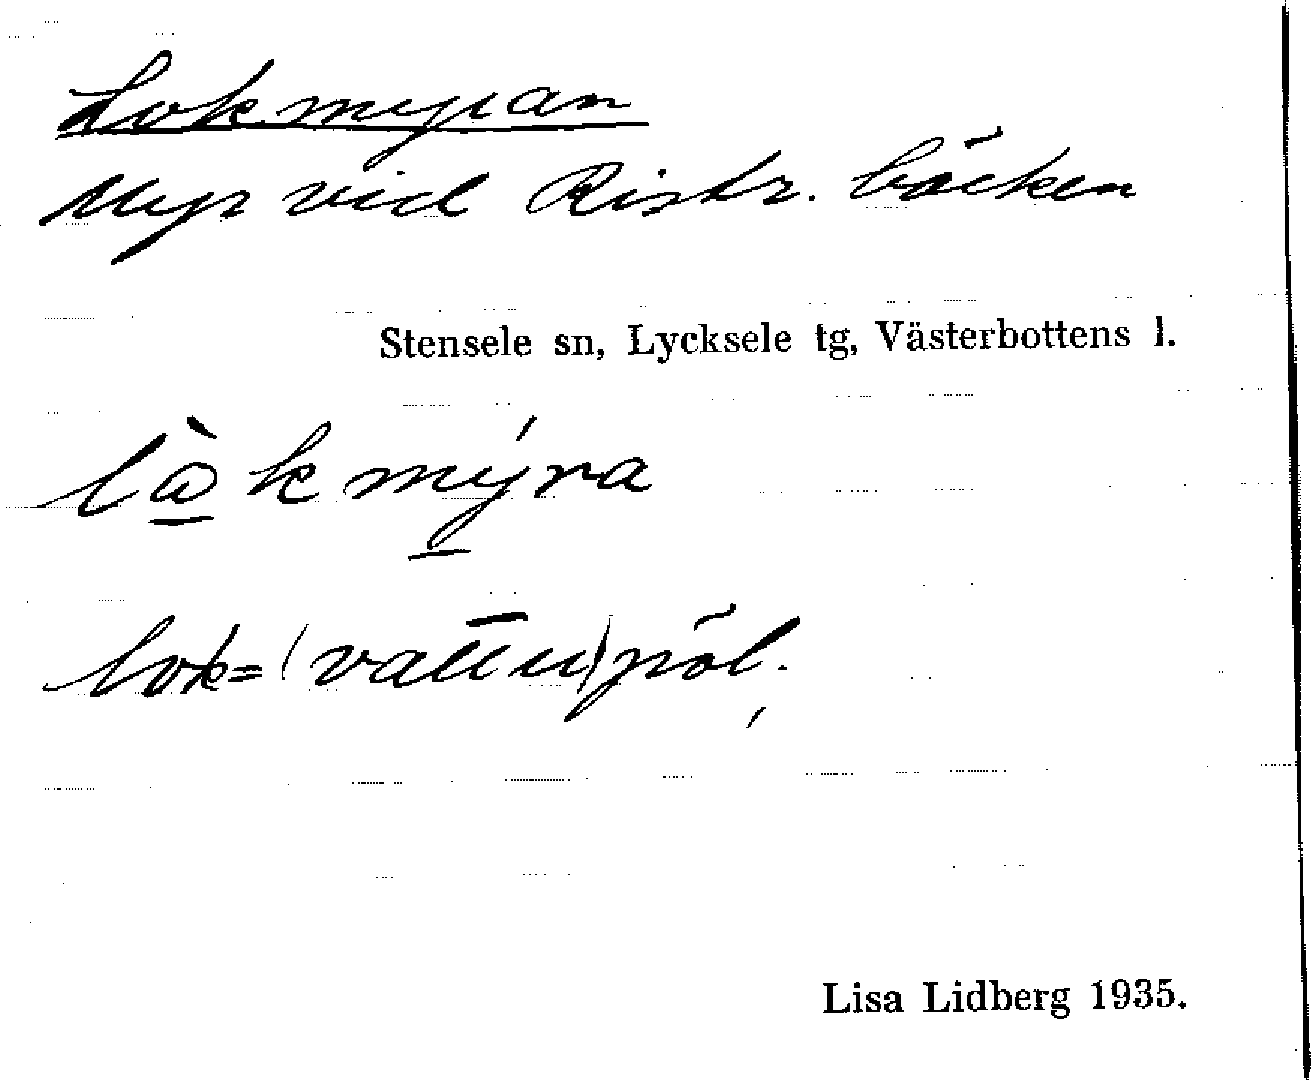 Lokmyran
Myr vid Ristr. bäcken
Stensele sn, Lycksele tg, Västerbottens l.
là̱kmý̱ra
lok=(vatten)pöl.
Lisa Lidberg 1935.